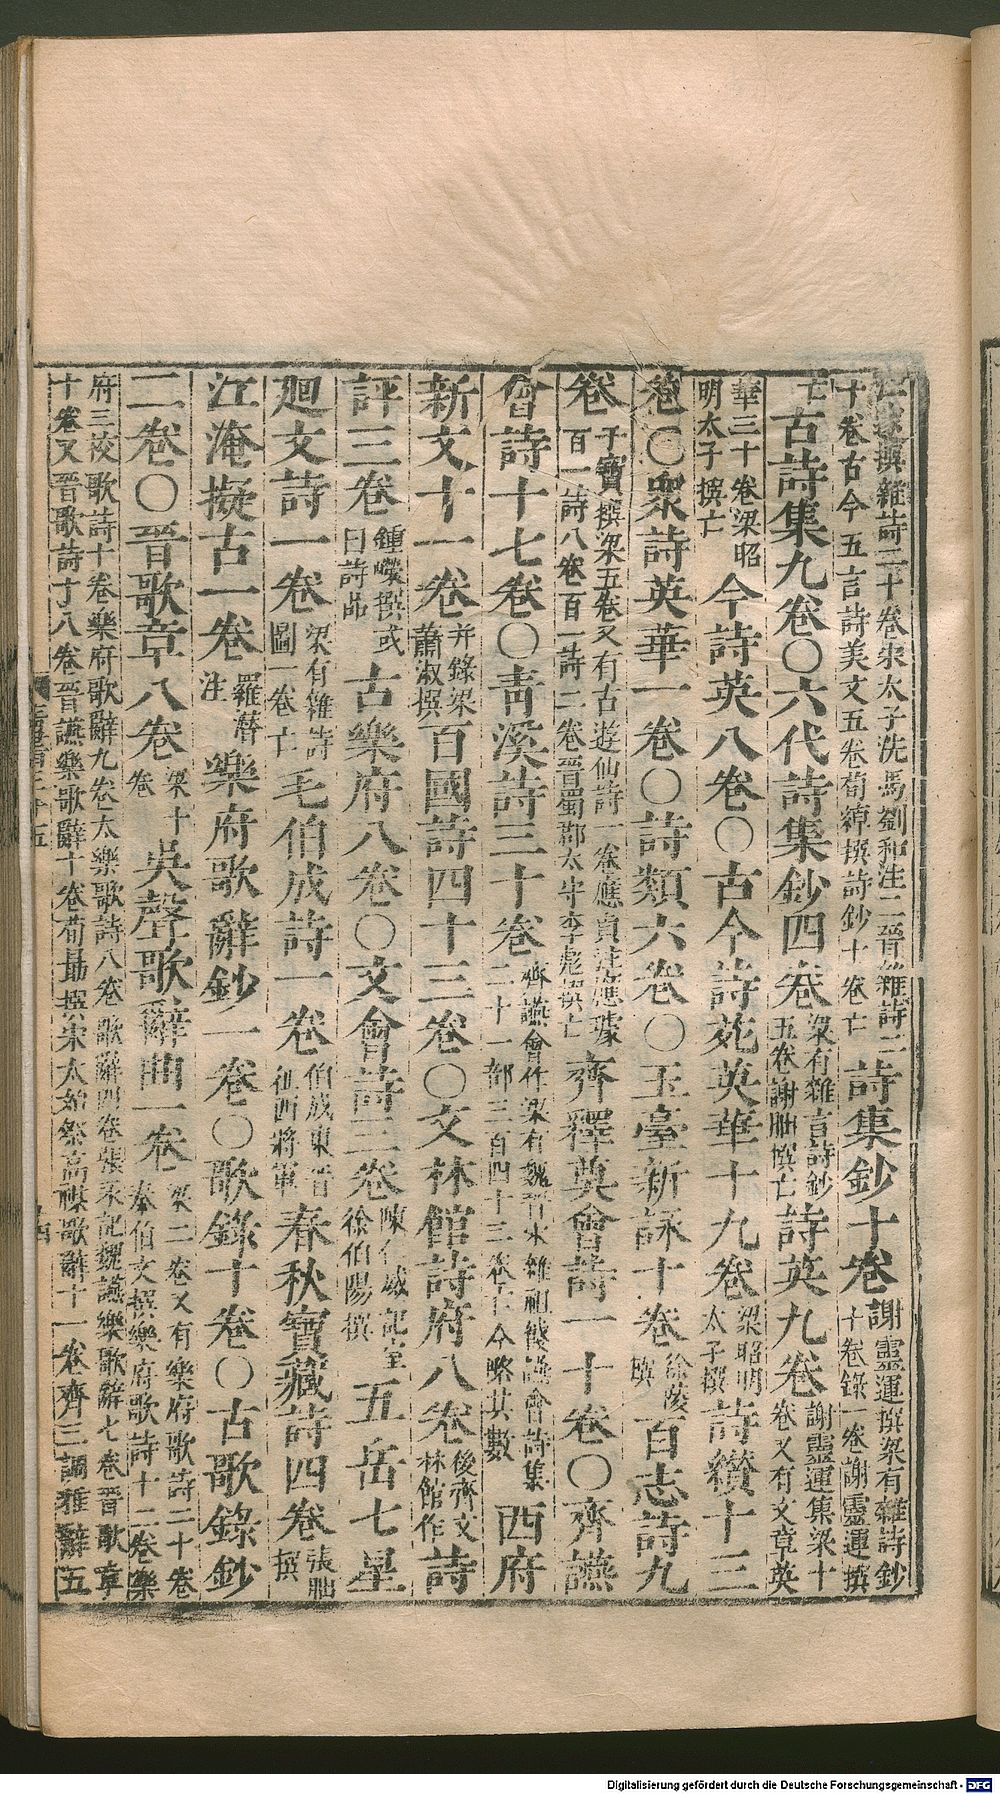 江邃撰雜詩二十卷宋太子洗馬劉和注二晉雜詩二十卷古今五言詩美文五卷荀綽撰詩鈔十卷亡詩集鈔十卷謝靈運撰梁有雜詩鈔十卷錄一卷謝靈運撰
亡古詩集九卷〇六代詩集鈔四卷梁有雜言詩鈔五卷謝朏撰亡詩英九卷謝靈運集梁十卷又有文章英
華三十卷梁昭明太子撰亡今詩英八卷〇古今詩苑英華十九卷梁昭明太子撰詩纘十三
卷〇衆詩英華一卷〇詩類六卷〇玉臺新詠十卷徐陵撰百志詩九
卷干寶撰梁五卷又有古遊仙詩一卷應貞注應璩百一詩八卷百一詩二卷晉蜀郡太守李彪撰亡齊釋奠會詩一十卷〇齊讌
會詩十七卷〇青溪詩三十卷齊讌會作梁有魏晉宋雜祖餞讌會詩集二十一部三百四十三卷亡今略其數西府
新文十一卷并錄梁蕭淑撰百國詩四十三卷〇文林館詩府八卷後齊文林館作詩
評三卷鍾嶸撰或曰詩品古樂府八卷〇文會詩三卷陳仁威記室徐伯陽撰五岳七星
廻文詩一卷梁有雜詩圖一卷亡毛伯成詩一卷伯成東晉征西將軍春秋寶藏詩四卷張朏撰
江淹擬古一卷羅潛注樂府歌辭鈔一卷〇歌錄十卷〇古歌錄鈔
二卷〇晉歌章八卷梁十卷吳聲歌辭曲一卷梁二卷又有樂府歌詩二十卷秦伯文撰樂府歌詩十二卷樂
府三校歌詩十卷樂府歌辭九卷太樂歌詩八卷歌辭四卷張永記魏讌樂歌辭七卷晉歌章十卷又晉歌詩十八卷晉讌樂歌辭十卷荀勗撰宋太始祭高禖歌辭十一卷齊三調雅辭五
Digitalisierung gefördert durch die Deutsche Forschungsgemeinschaft - DFG